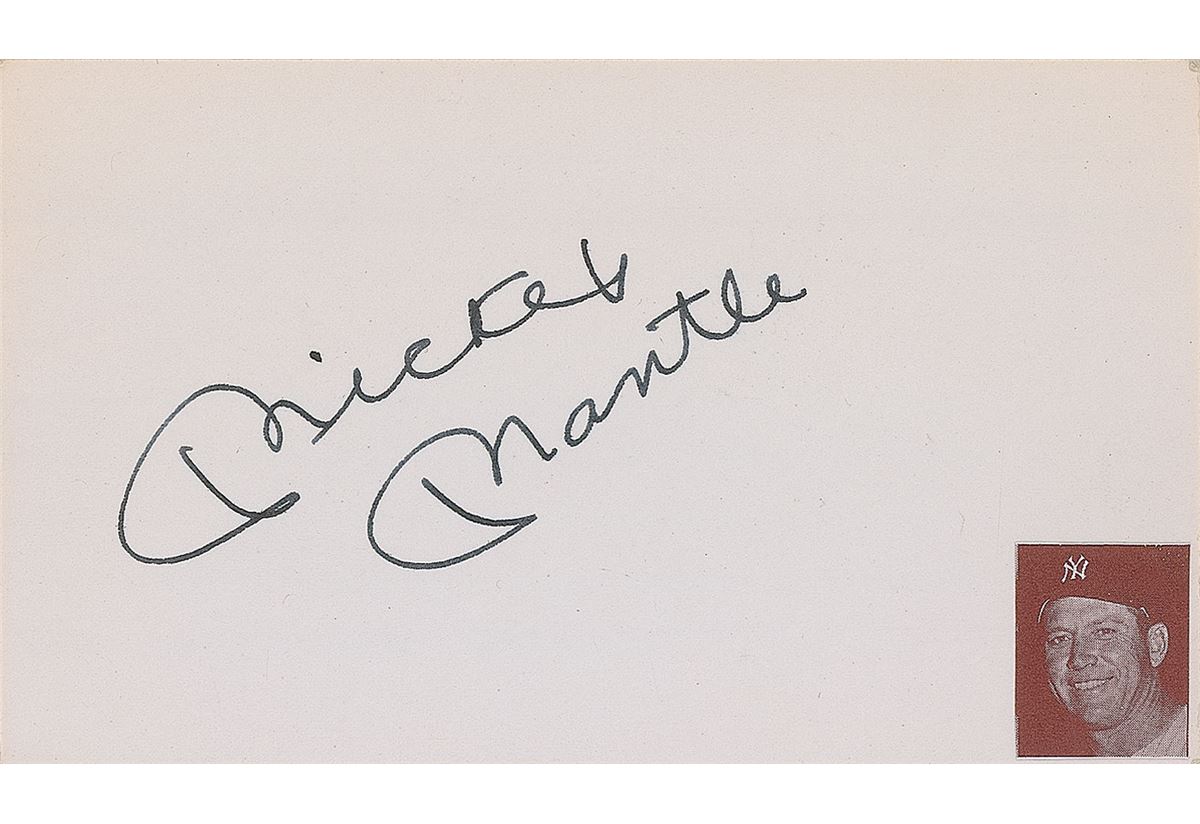 Mickey
Mantle
NY